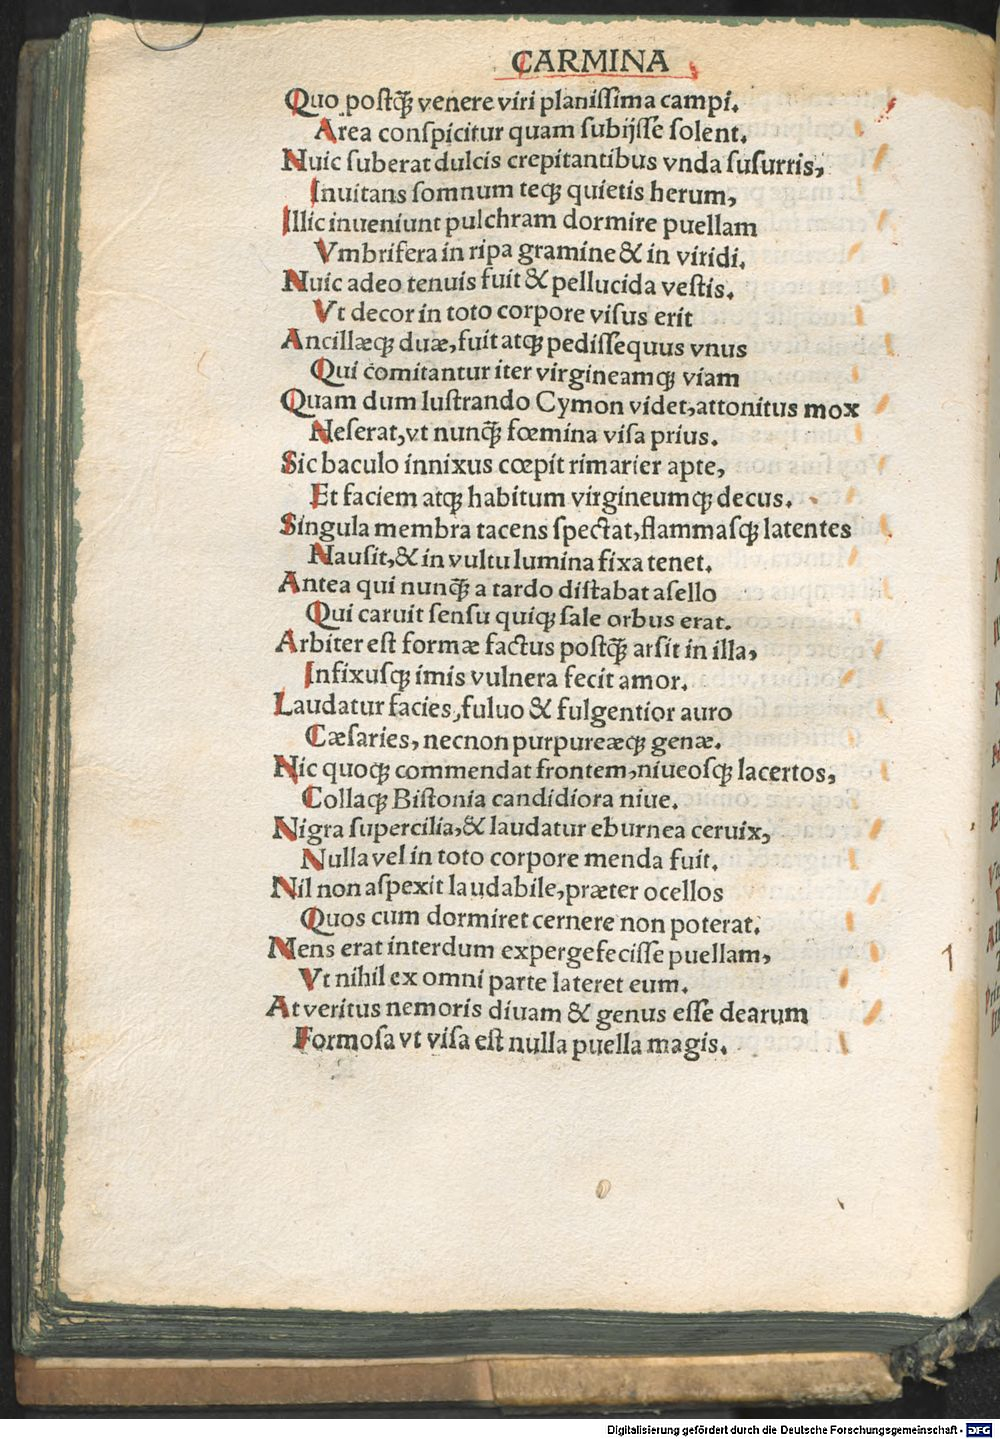 CARMINA
Quo poſtq̃ venere viri planiſſima campi.
Area conſpicitur quam ſubijſſe ſolent.
Huic ſuberat dulcis crepitantibus vnda ſuſurris,
Inuitans ſomnum teqꝫ quietis herum,
Illic inueniunt pulchram dormire puellam
Vmbrifera in ripa gramine & in viridi.
Huic adeo tenuis fuit & pellucida veſtis.
Vt decor in toto corpore viſus erit
Ancillæqꝫ duæ, fuit atqꝫ pediſſequus vnus
Qui comitantur iter virgineamqꝫ viam
Quam dum luſtrando Cymon videt, attonitus mox
Heſerat, vt nunq̃ fœmina viſa prius.
Sic baculo innixus cœpit rimarier apte,
Et faciem atqꝫ habitum virgineumqꝫ decus.
Singula membra tacens ſpectat, flammaſqꝫ latentes
Hauſit, & in vultu lumina fixa tenet.
Antea qui nunq̃ a tardo diſtabat aſello
Qui caruit ſenſu quiqꝫ ſale orbus erat.
Arbiter eſt formæ factus poſtq̃ arſit in illa,
Infixuſqꝫ imis vulnera fecit amor.
Laudatur facies, fuluo & fulgentior auro
Cæſaries, necnon purpureæqꝫ genæ.
Hic quoqꝫ commendat frontem, niueoſqꝫ lacertos,
Collaqꝫ Biſtonia candidiora niue.
Nigra ſupercilia, & laudatur eburnea ceruix,
Nulla vel in toto corpore menda fuit.
Nil non aſpexit laudabile, præter ocellos
Quos cum dormiret cernere non poterat.
Mens erat interdum expergefeciſſe puellam,
Vt nihil ex omni parte lateret eum.
At veritus nemoris diuam & genus eſſe dearum
Formoſa vt viſa eſt nulla puella magis.
Digitalisierung gefördert durch die Deutsche Forschungsgemeinschaft - DFG